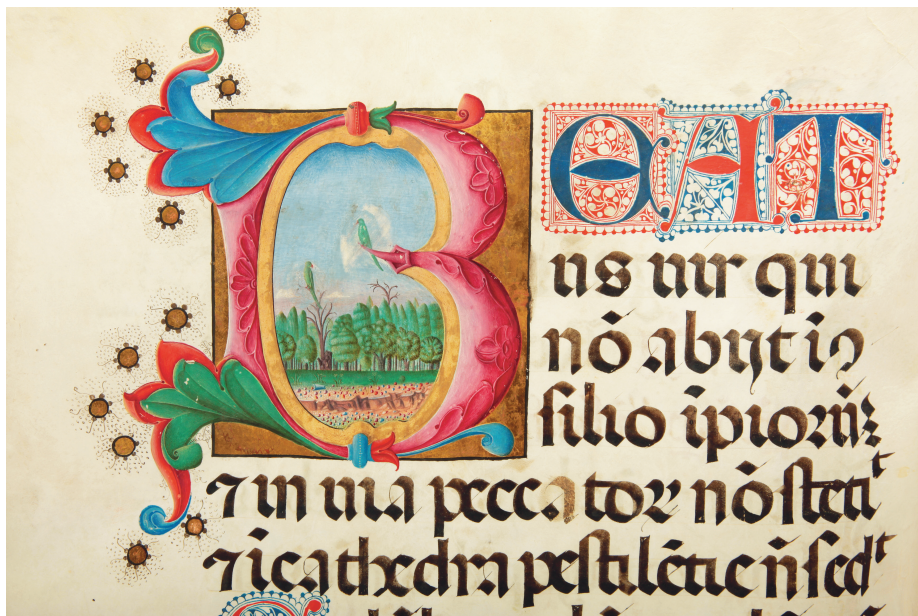 BEAT
us uir qui
nō abijt ī ↄ
silio īpiorū;
⁊ in uia peccator nō stetit
⁊ ī cathedra pestilētie ñ sedt